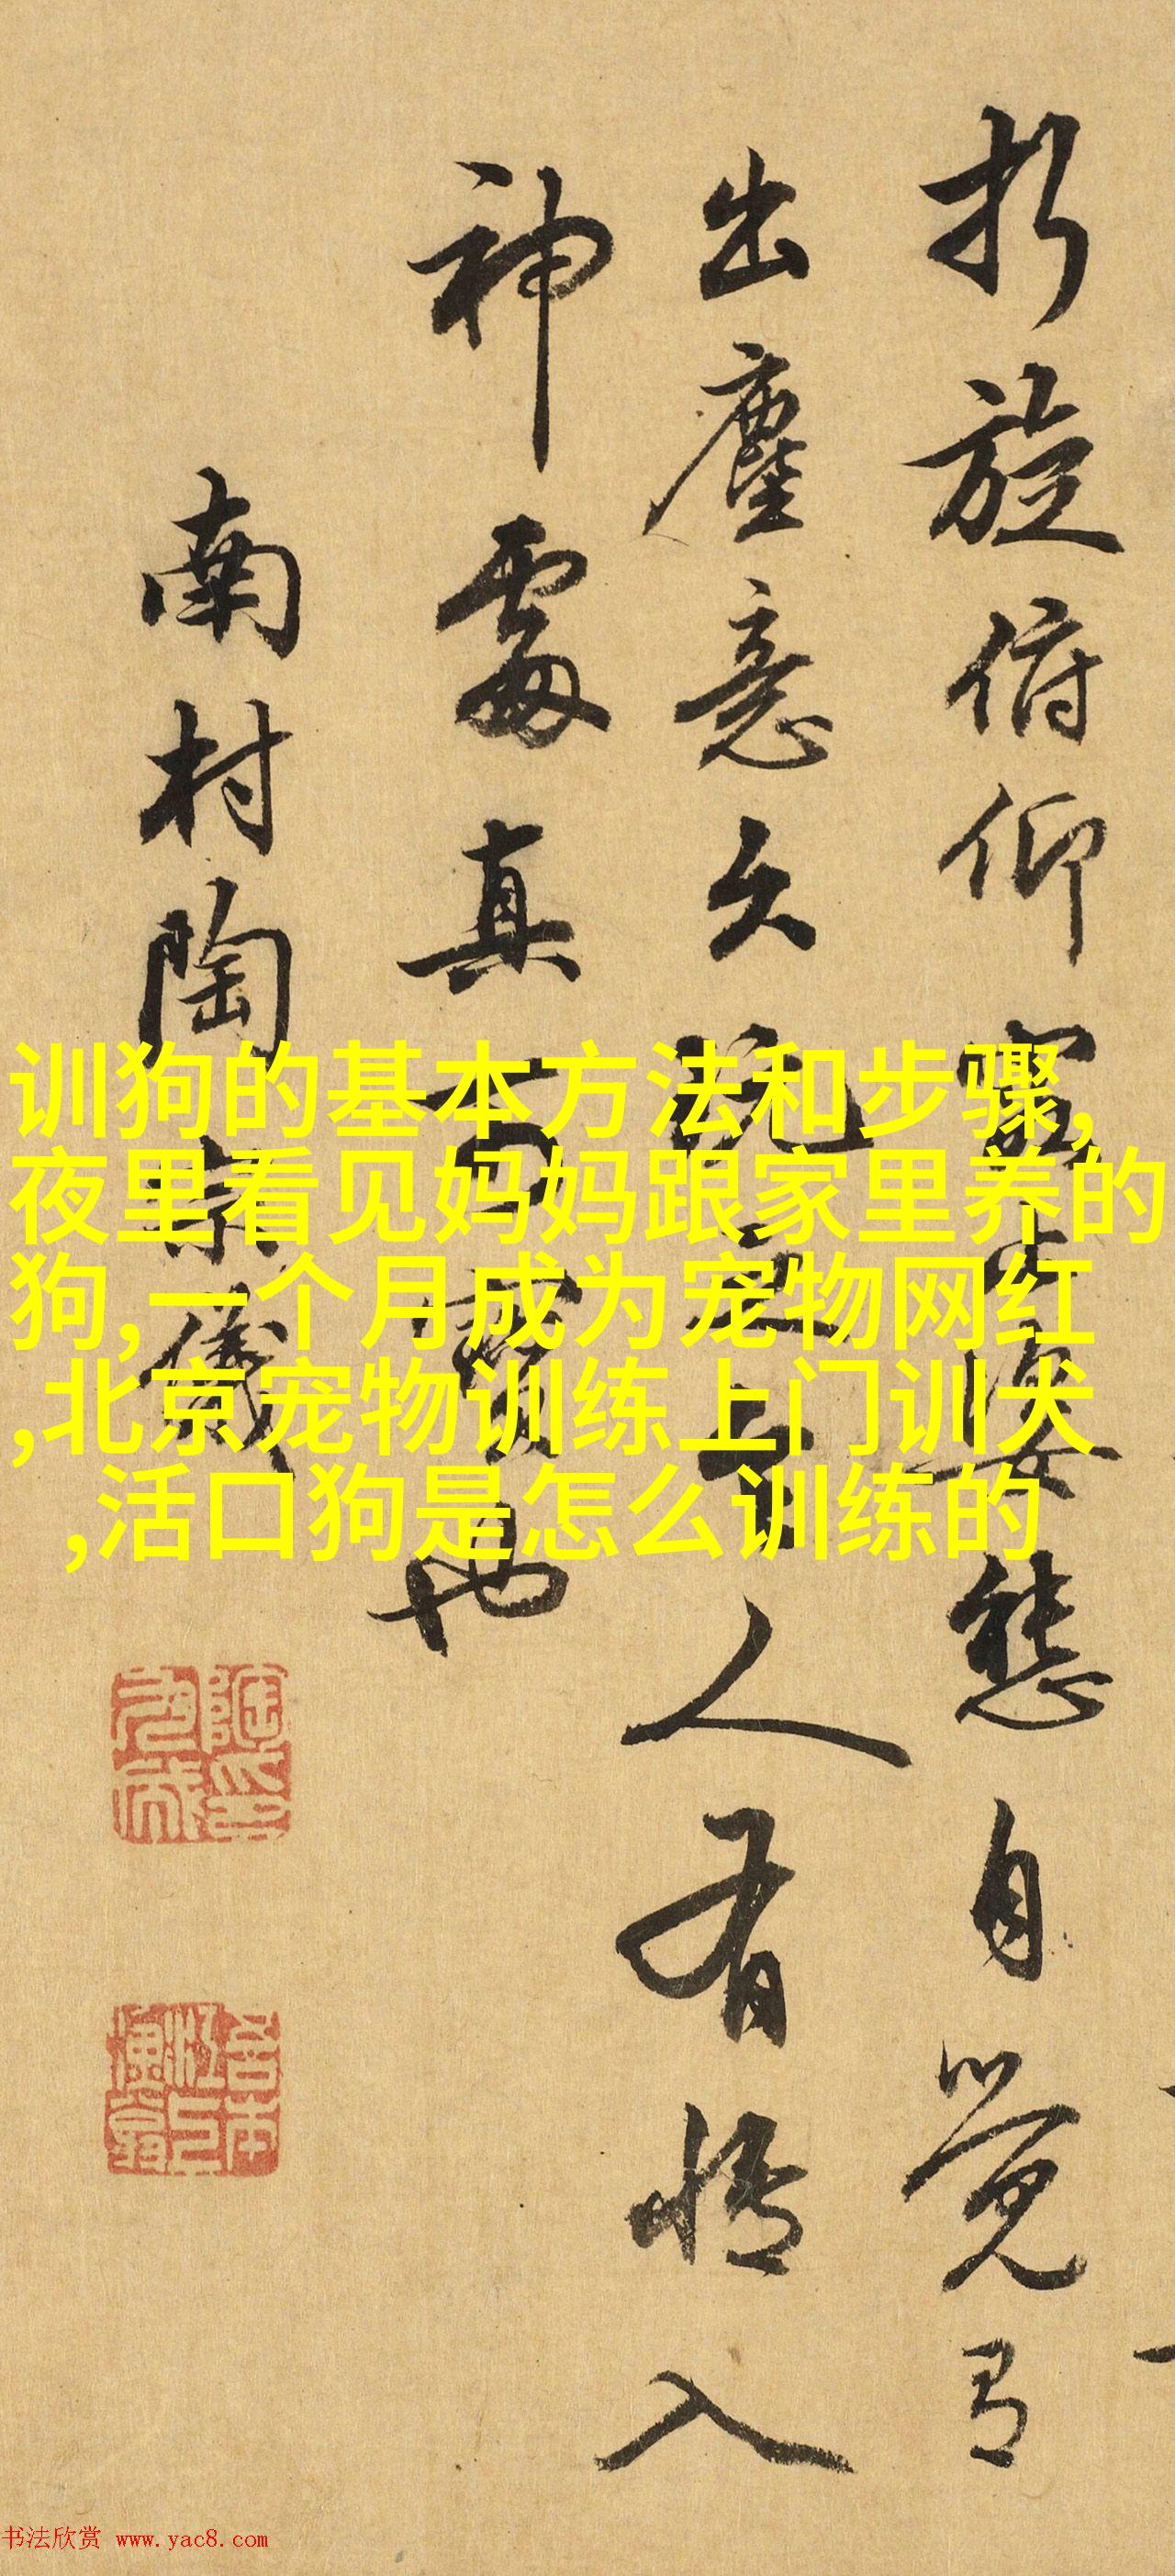 折旋俯仰靈峯姿態自覺有
出塵意久玩之与人有情入
神處真可寶也
南村陶宗儀
训狗的基本方法和步骤,
夜里看见妈妈跟家里养的
狗,一个月成为宠物网红
,北京宠物训练上门训犬
,活口狗是怎么训练的
书法欣赏 www.yac8.com